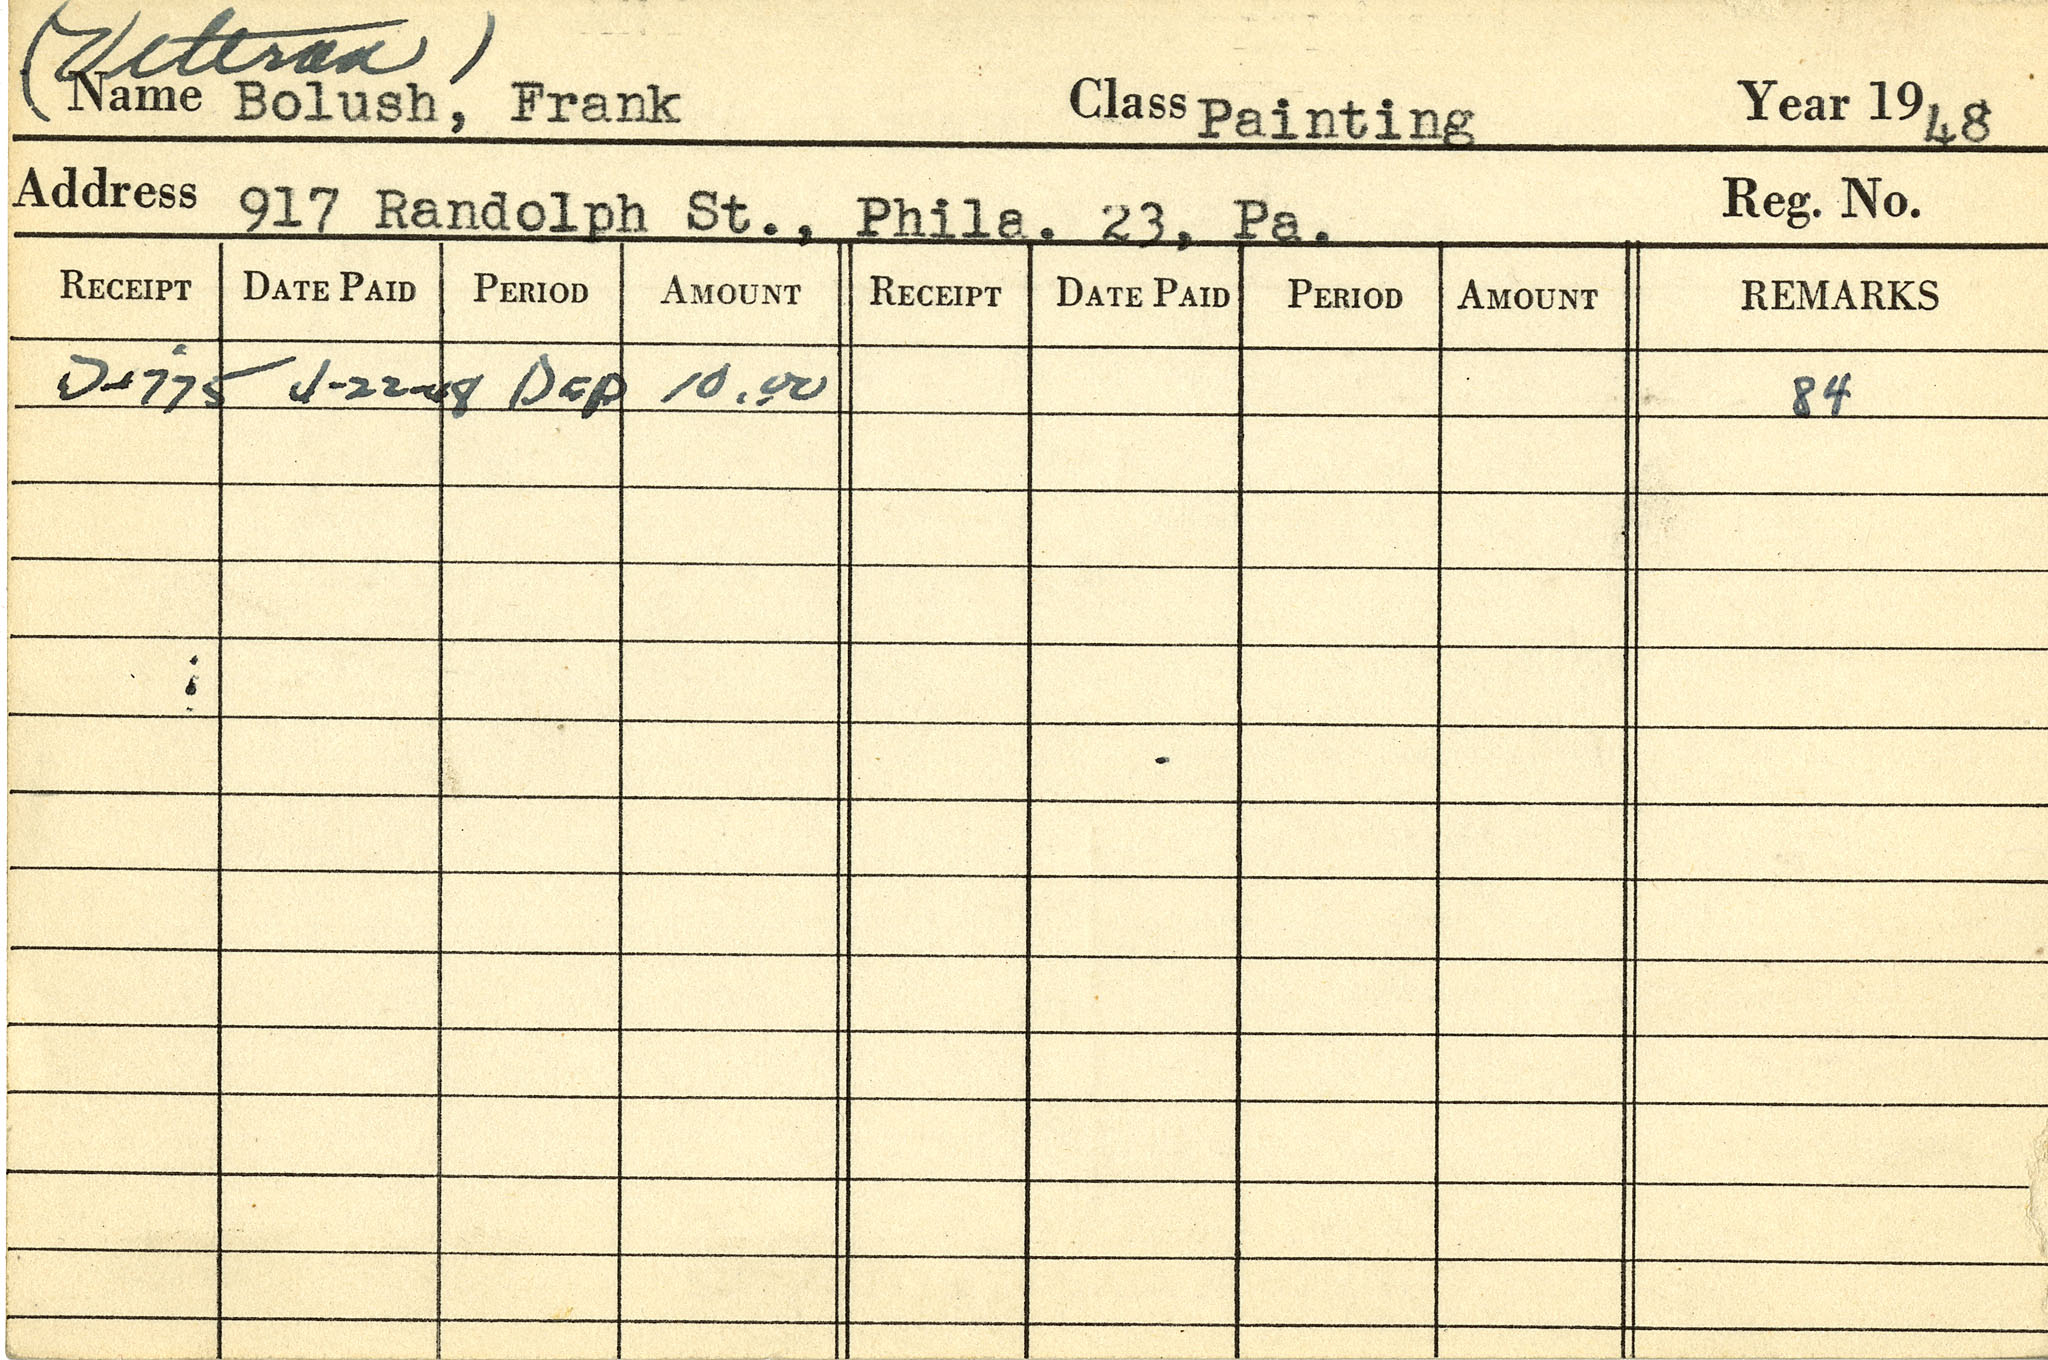 (Veteran)
Name Bolush, Frank Class Painting Year 1948
Address 917 Randolph St., Phila. 23, Pa. Reg. No.
RECEIPT DATE PAID PERIOD AMOUNT RECEIPT DATE PAID PERIOD AMOUNT REMARKS
-22-48 DEP 10.00 84